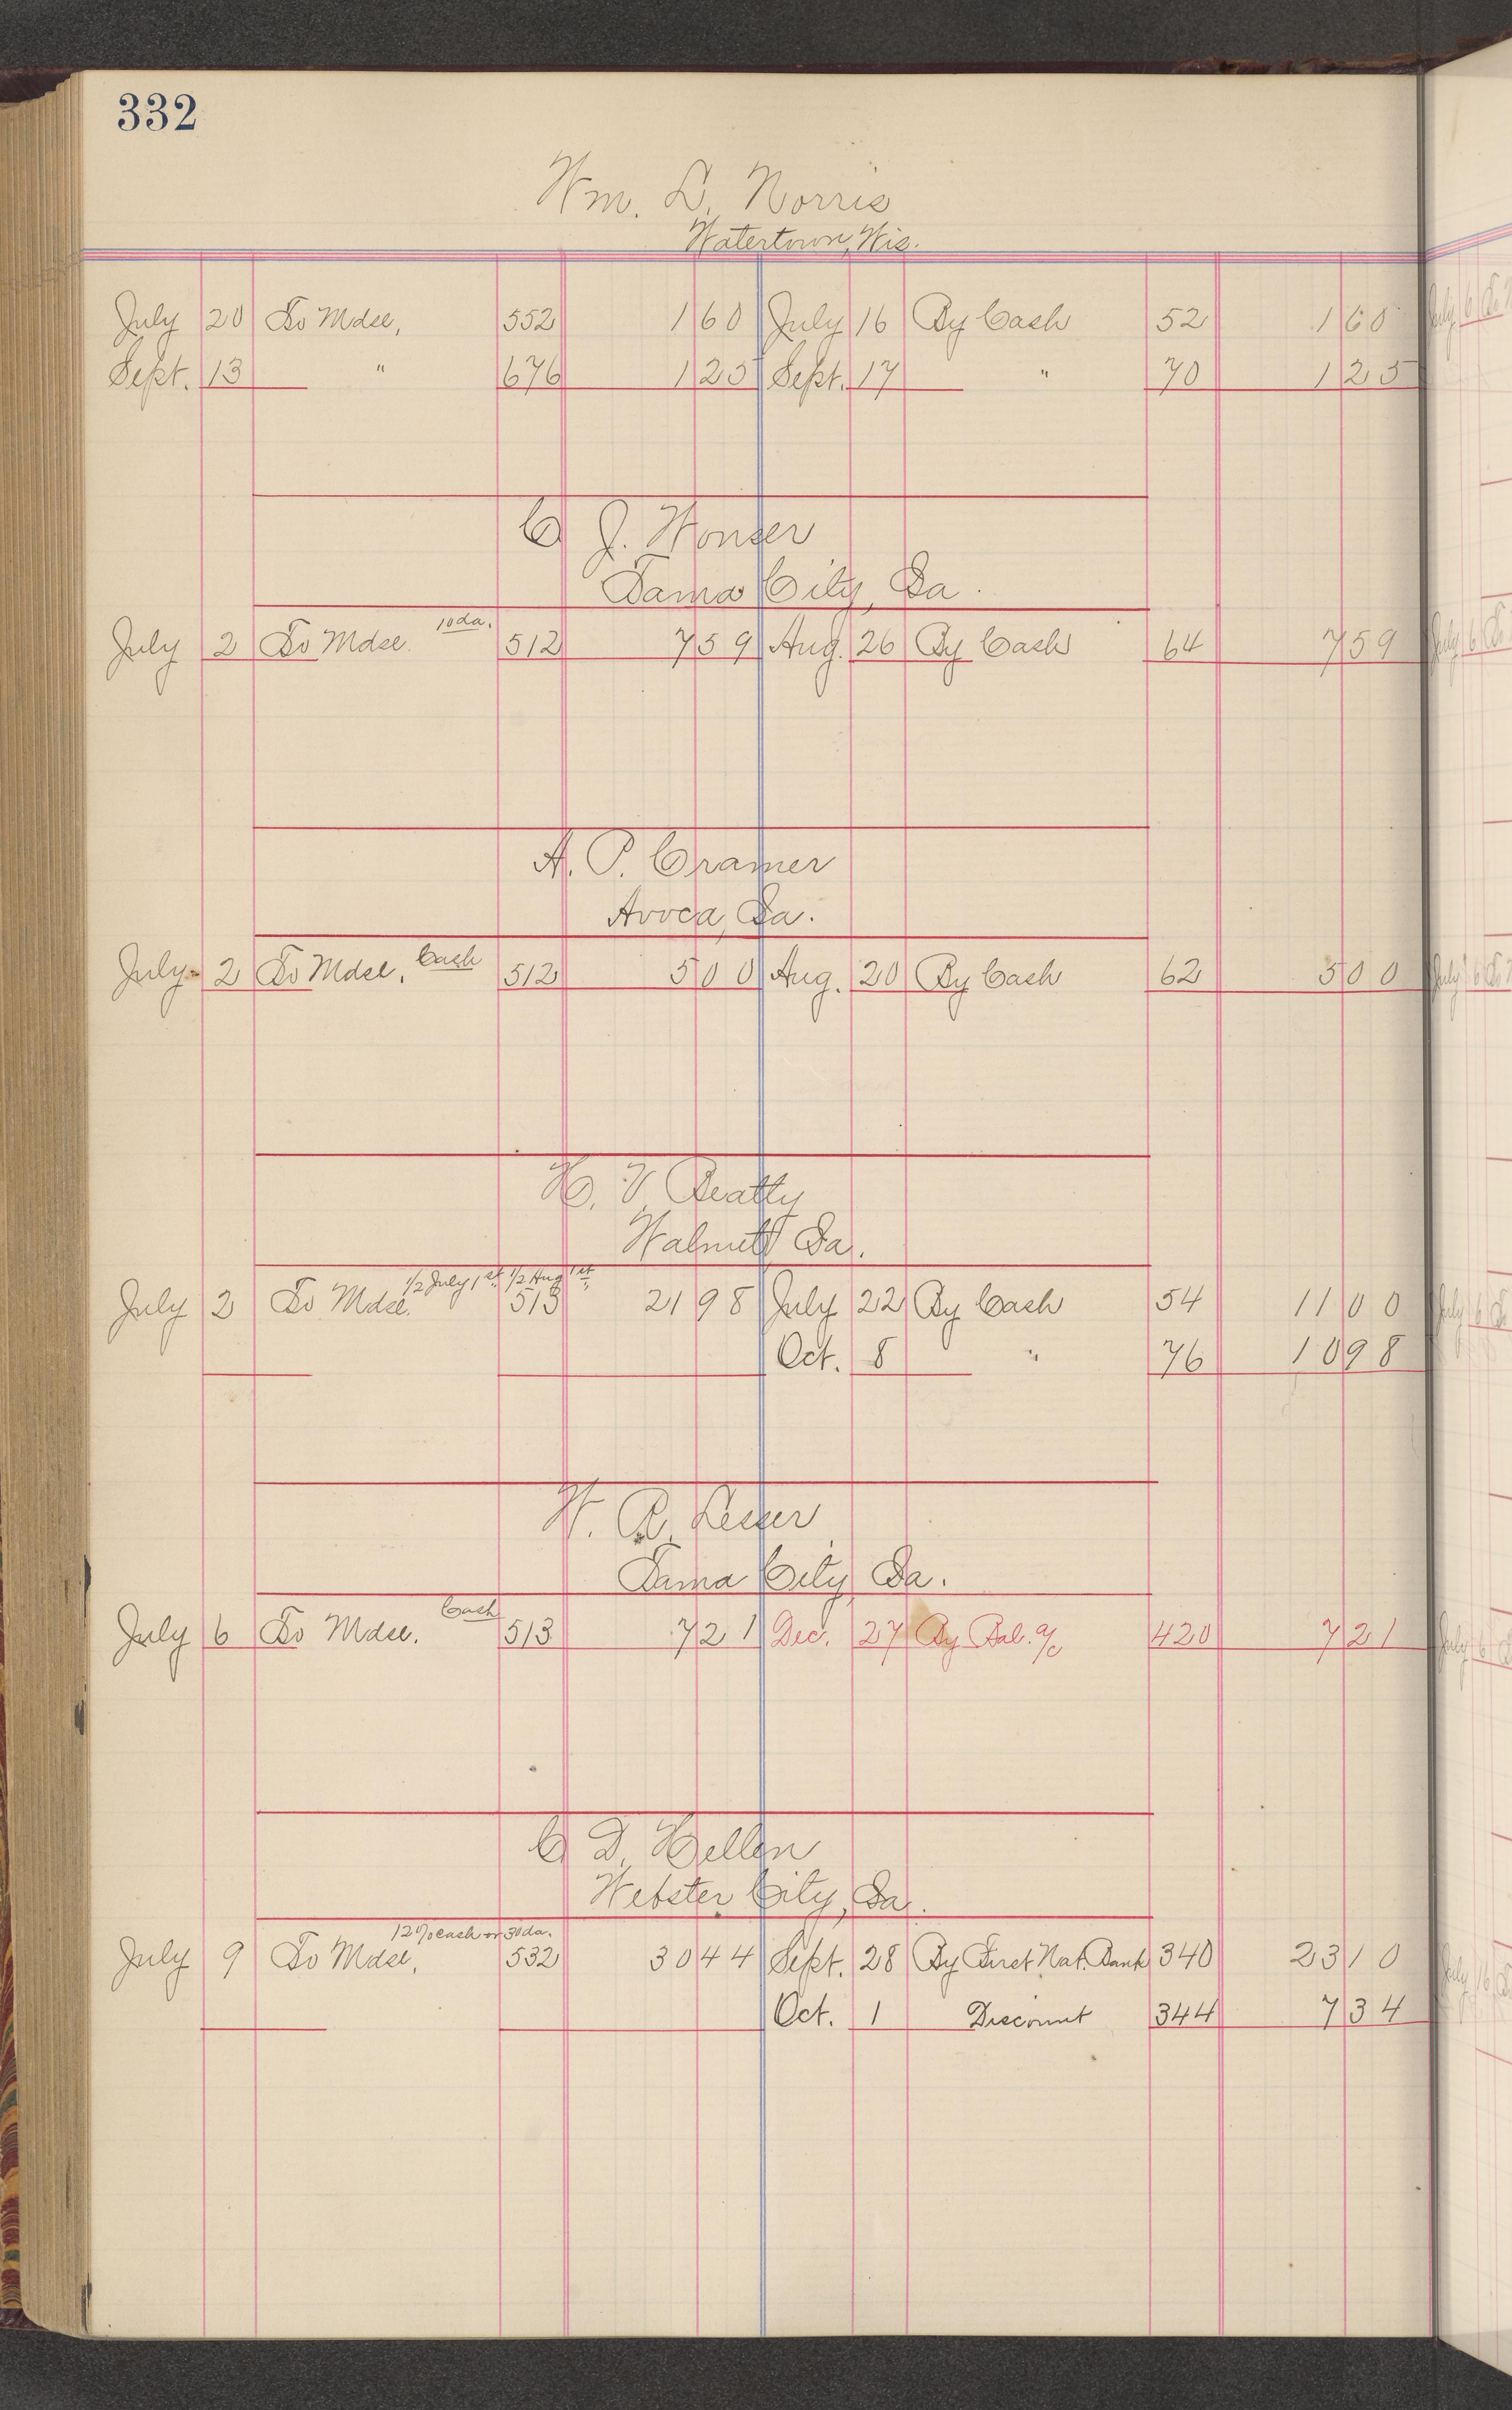 332
Wm. L. Norris
Watertown, Wis.
July 20 To Mdse, 552 1 60 July 16 By Cash 52 1 60
Sept. 13 " 676 1 25 Sept. 17 " 70 1 25
C J. Wonser
Tama City, Ia.
10 da.
July 2 To Mdse. 512 7 59 Aug. 26 By Cash 64 7 59
A. P. Cramer
Avoca, Ia.
Cash
July 2 To Mdse. 512 5 00 Aug. 20 By Cash 62 5 00
H. V. Beatty
Walnutt Ia.
1/2 July 1st, 1/2 Aug 1st,
July 2 To Mdse. 513 21 98 July 22 By Cash 54 11 00
Oct. 8 " 76 10 98
W. R. Lesser
Tama City Ia.
Cash
July 6 To Mdse. 513 7 21 Dec. 27 By Bal. a/c 420 7 21
C D. Hellen
Webster City, Ia.
12% cash or 30 da.
July 9 To Mdse, 532 30 44 Sept. 28 By First Nat. Bank 340 23 10
Oct. 1 Discount 344 7 34